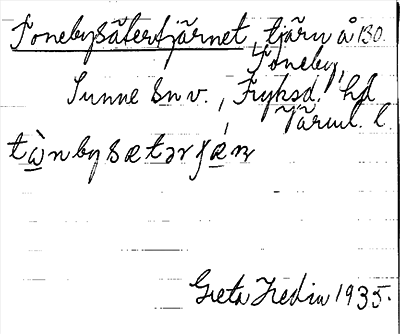 Tonebysätertjärnet, tjärn å 130
Toneby,
Sunne sn v., Fryksd. hd
Värml. l.
tànbysætərɟǽɳ
Greta Hedin 1935.